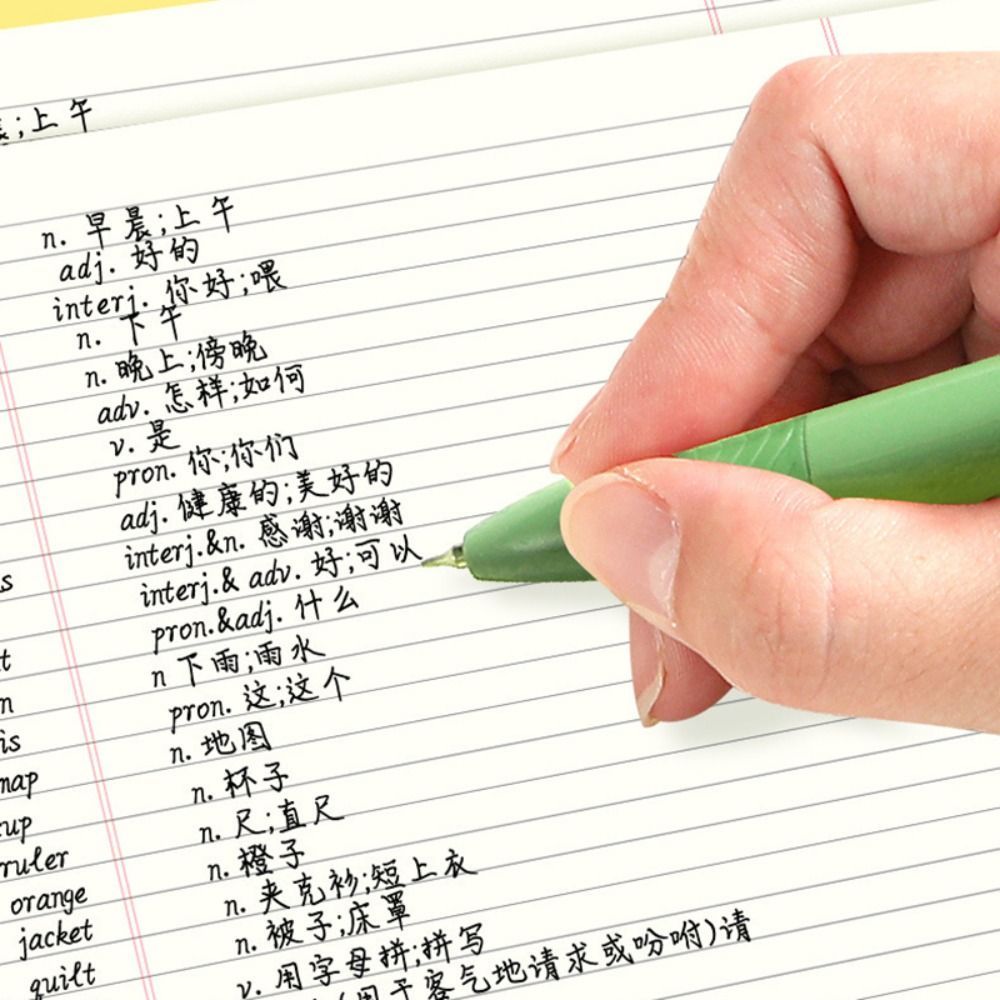 ;上午
n. 早晨;上午
adj. 好的
interj. 你好;喂
n. 下午
n. 晚上;傍晚
adv. 怎样;如何
v. 是
pron. 你;你们
adj. 健康的;美好的
interj.&n. 感谢;谢谢
interj.& adv. 好;可以
pron.&adj. 什么
n 下雨;雨水
pron. 这;这个
n. 地图
map n. 杯子
cup n. 尺;直尺
ruler n. 橙子
orange n. 夹克衫;短上衣
jacket n. 被子;床罩
quilt v. 用字母拼;拼写
(用于客气地请求或吩咐)请